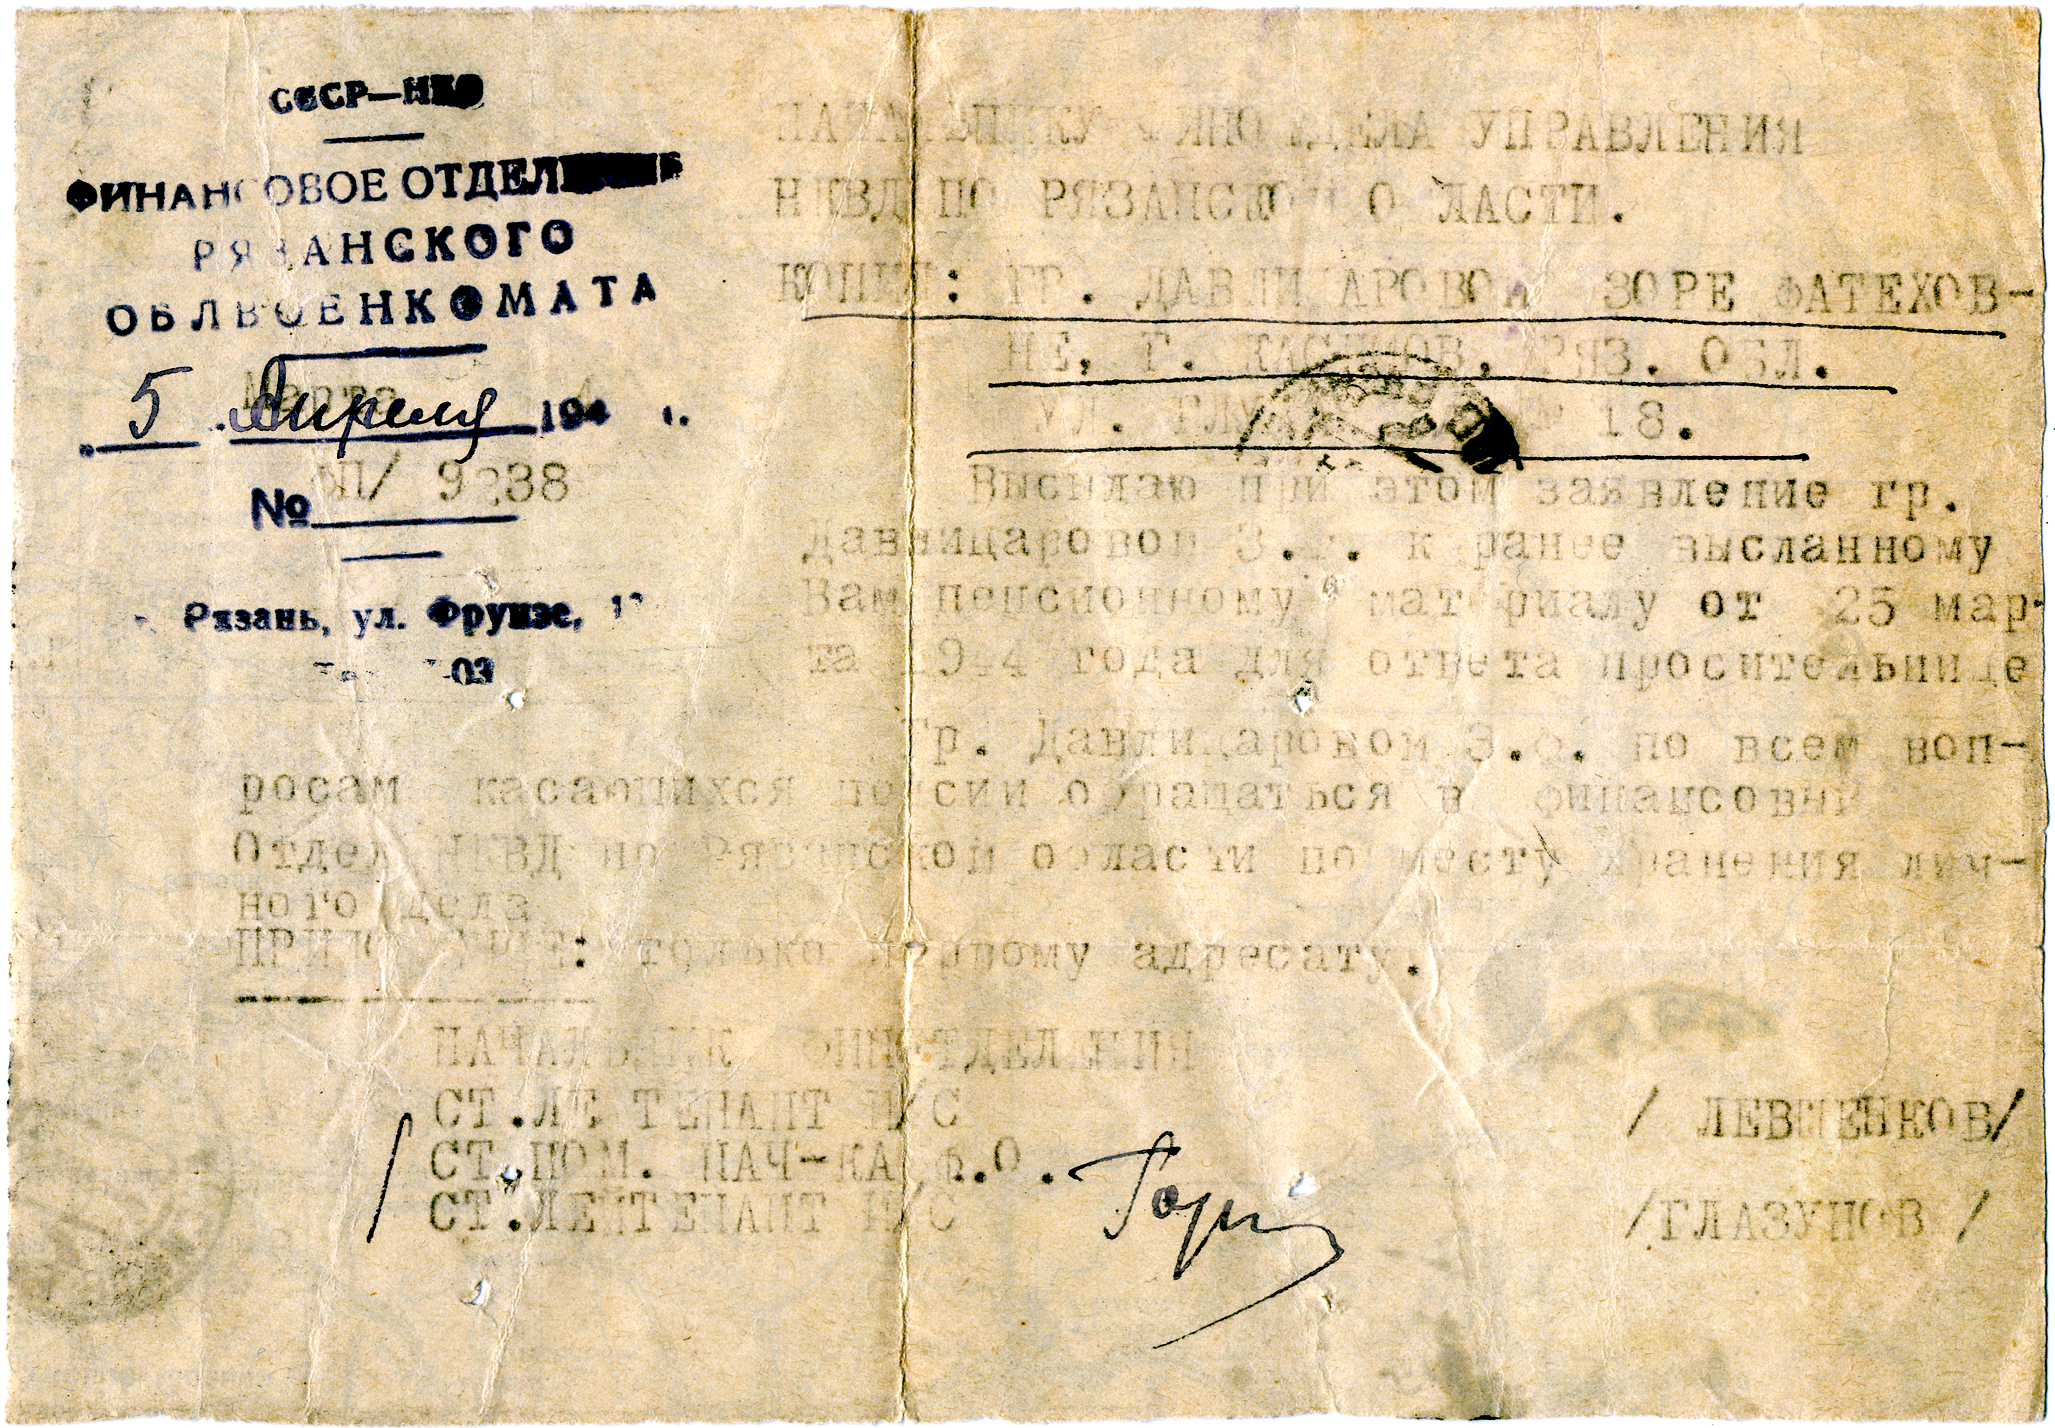 СССР—НКО
ФИНАНСОВОЕ ОТДЕЛЕНИЕ
РЯЗАНСКОГО
ОБЛВОЕНКОМАТА
„5 . Апреля 194 г.
№ 
Рязань, ул. Фрунзе,
НАЧАЛЬНИКУ ФИНОТДЕЛА УПРАВЛЕНИЯ
НКВД ПО РЯЗАНСКОЙ ОБЛАСТИ.
КОПИЯ: ГР. ДАВЛИЦАРОВОЙ ЗОРЕ ФАТЕХОВ-
НЕ, Г. КАСИМОВ, РЯЗ. ОБЛ.
УЛ. 18.
Высылаю при этом заявление гр.
Давлицаровой З.Ф. к ранее высланному
Вам пенсионному материалу от 25 мар-
та 1944 года для ответа просительнице
Гр. Давлицаровой З.Ф. по всем воп-
росам касающихся пенсии обращаться в финансовый
Отдел НКВД по Рязанской области по месту хранения лич-
ного дела
только первому адресату.
НАЧАЛЬНИК ФИНОТДЕЛЕНИЯ
СТ.ЛЕЙТЕНАНТ И/С / ЛЕВШЕНКОВ/
СТ.ПОМ. НАЧ-КА Ф.О.
СТ.ЛЕЙТЕНАНТ И/С /ГЛАЗУНОВ /